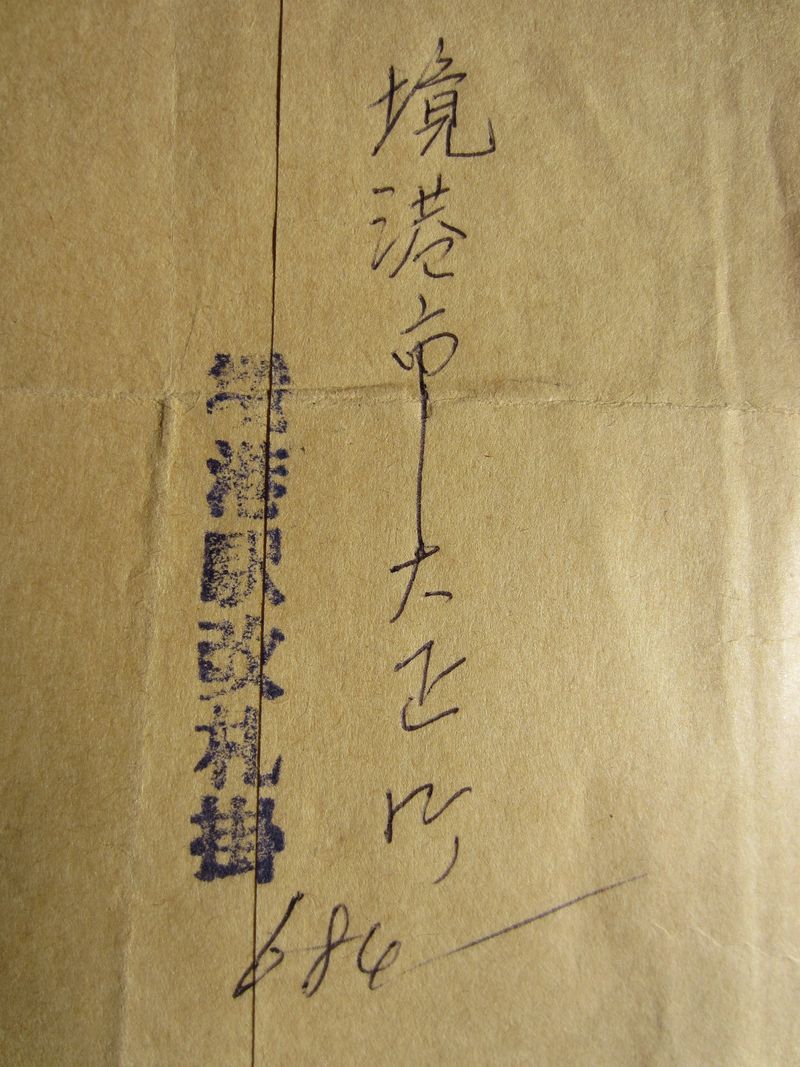 境港市大正町
境港駅改札掛
684